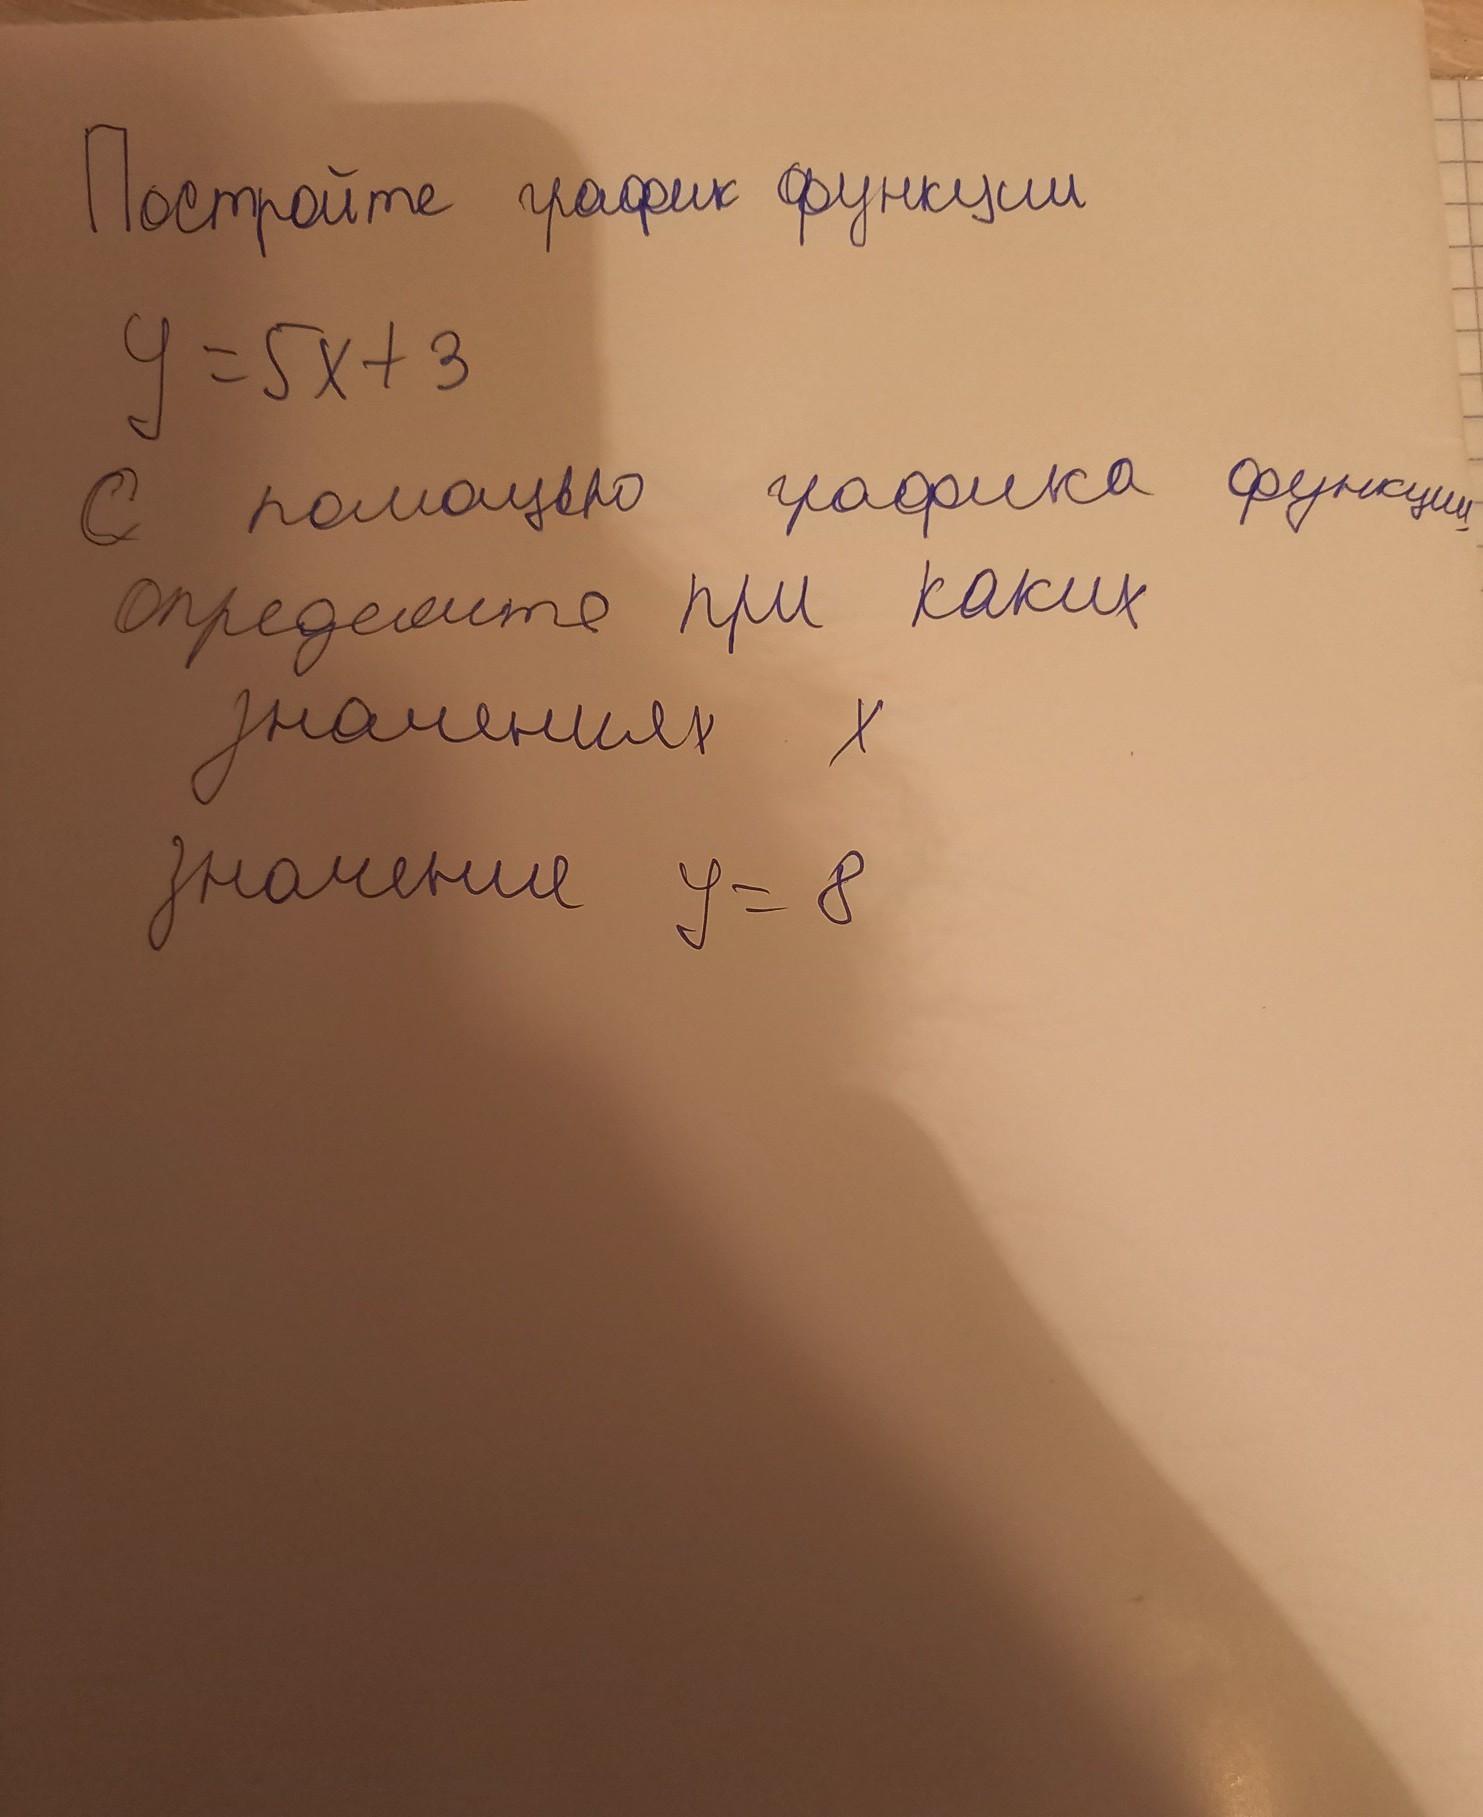 Постройте график функции
y = 5x + 3
С помощью графика функции
определите при каких
значениях x
значение y = 8